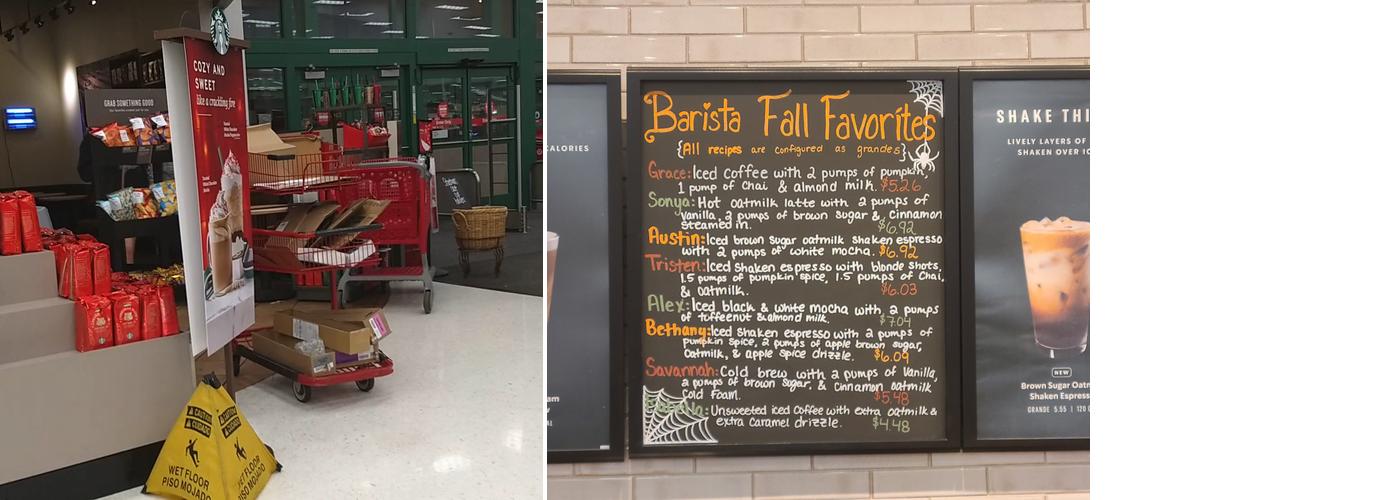 COZY AND
SWEET
like a crackling fire
GRAB SOMETHING GOOD
CAUTION
CUIDADO
WET FLOOR
PISO MOJADO
WET FLOOR
PISO MOJADO
CALORIES
Barista Fall Favorites
{All recipes are configured as grandes}
Grace: Iced Coffee with 2 pumps of pumpkin,
1 pump of Chai & almond milk. $5.26
Sonya: Hot oatmilk latte with 2 pumps of
vanilla, 2 pumps of brown sugar & cinnamon
steamed in. $6.92
Austin: Iced brown sugar oatmilk shaken espresso
with 2 pumps of white mocha. $6.92
Tristen: Iced Shaken espresso with blonde shots,
1.5 pumps of pumpkin spice, 1.5 pumps of Chai,
& oatmilk. $6.03
Alex: Iced black & white mocha with 2 pumps
of toffeenut & almond milk. $7.04
Bethany: Iced Shaken espresso with 2 pumps of
pumpkin spice, 2 pumps of apple brown sugar,
Oatmilk, & apple spice drizzle. $6.09
Savannah: Cold brew with 2 pumps of Vanilla,
2 pumps of brown sugar, & Cinnamon oatmilk
cold foam. $5.48
Unsweetened iced coffee with extra oatmilk &
extra caramel drizzle. $4.48
SHAKE THI
LIVELY LAYERS OF
SHAKEN OVER IC
NEW
Brown Sugar Oatm
Shaken Espress
GRANDE 5.55 | 120 C